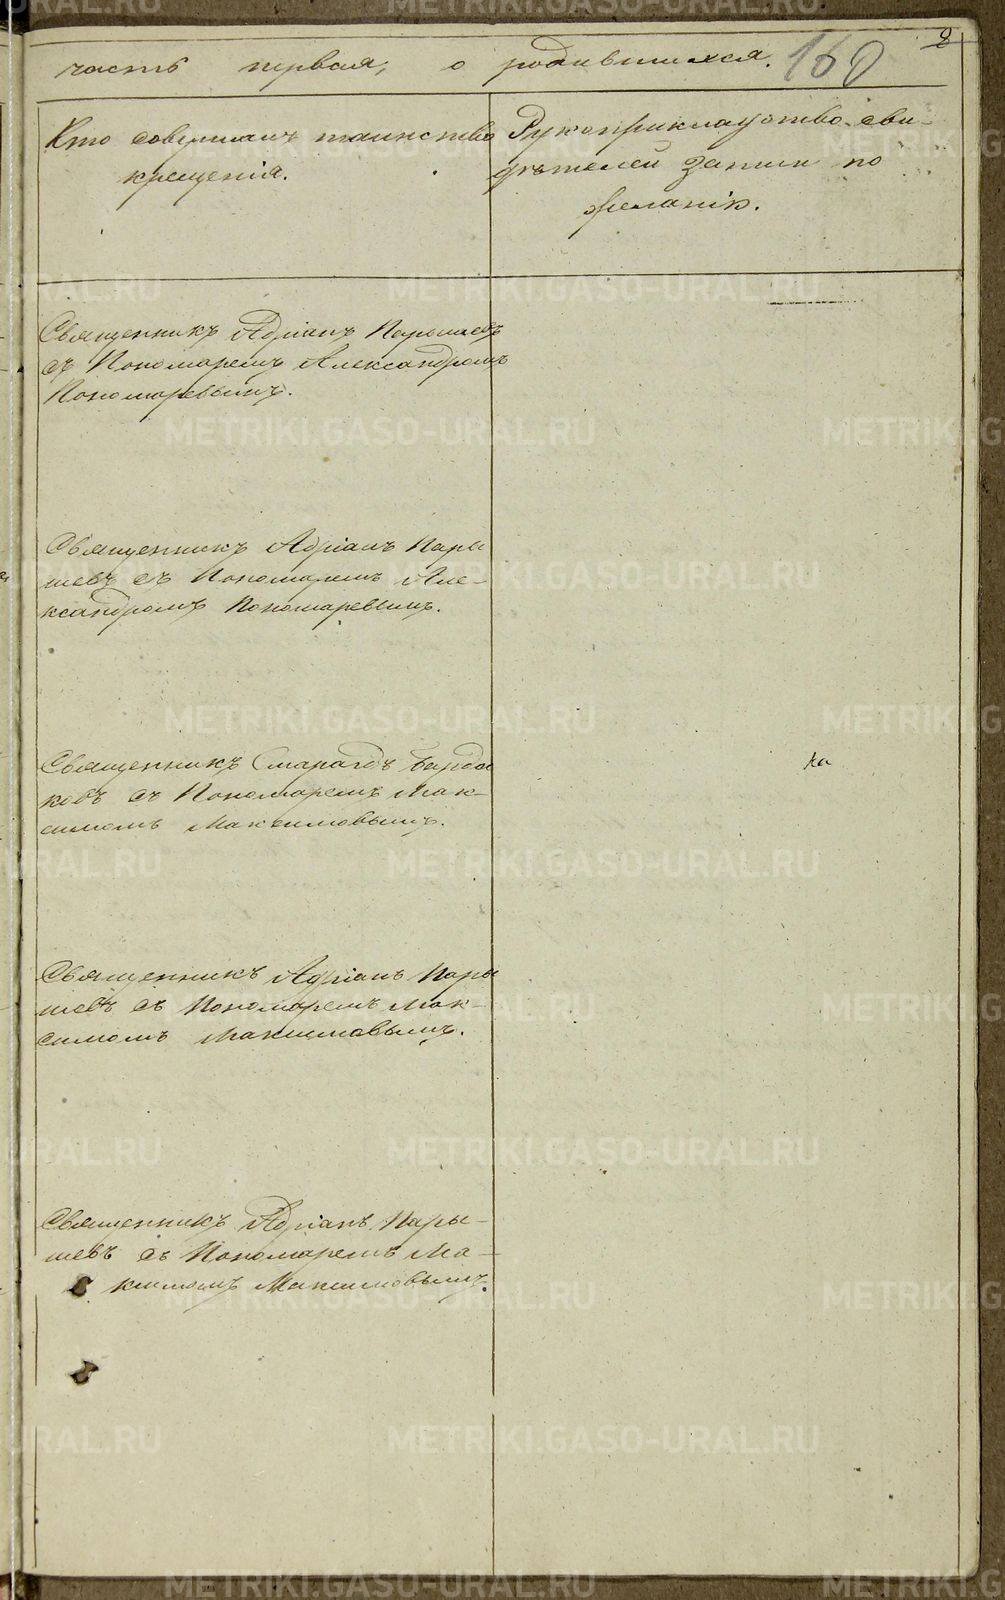 8
часть первая, о родившихся. 160
Кто совершалъ таинство
крещенія.
Рукоприкладство сви-
дѣтелей записи по
желанію.
Священникъ Адріанъ Парышевъ
съ Пономаремъ Александромъ
Пономаревымъ.
Священникъ Адріанъ Пары
шевъ съ Пономаремъ Але-
ксандромъ Пономаревымъ.
Священникъ Смарагдъ Бардa
ковъ съ Пономаремъ Мак-
симомъ Максимовымъ.
Священникъ Адріанъ Пары
шевъ съ Пономаремъ Мак-
симомъ Максимовымъ.
Священникъ Адріанъ Пары-
шевъ съ Пономаремъ Ма-
ксимомъ Максимовымъ.
METRIKI.GASO-URAL.RU